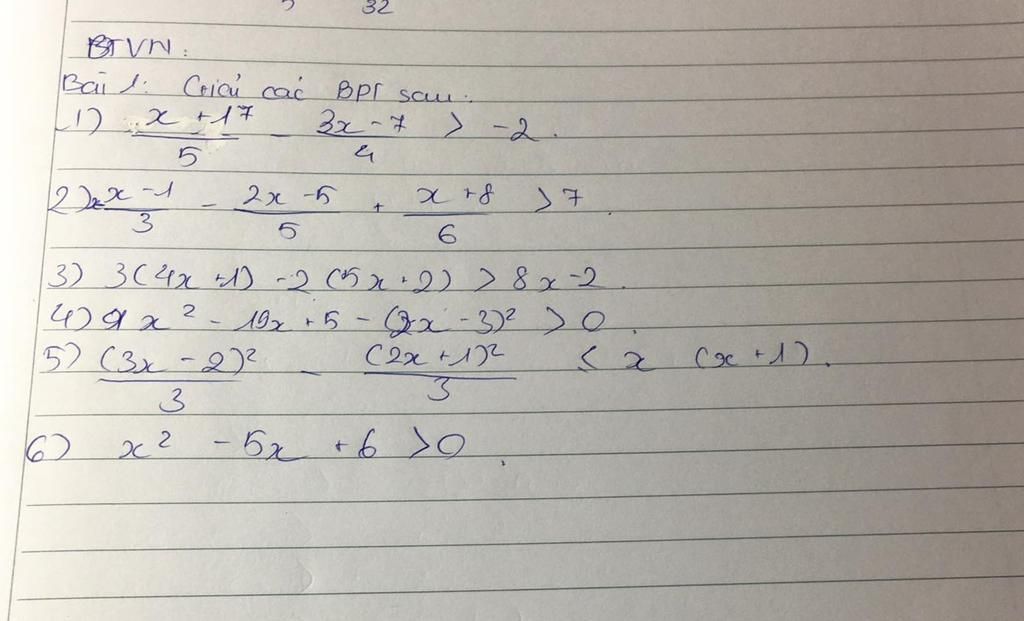 32
BTVN:
Bài 1: Giải các BPT sau:
1) (x + 17)/5 - (3x - 7)/4 > -2.
2) (x - 1)/3 - (2x - 5)/5 + (x + 8)/6 > 7.
3) 3(4x + 1) - 2(5x + 2) > 8x - 2.
4) x² - 19x + 5 - (x - 3)² > 0.
5) (3x - 2)²/3 - (2x + 1)²/3 ≤ x (x + 1).
6) x² - 5x + 6 > 0.